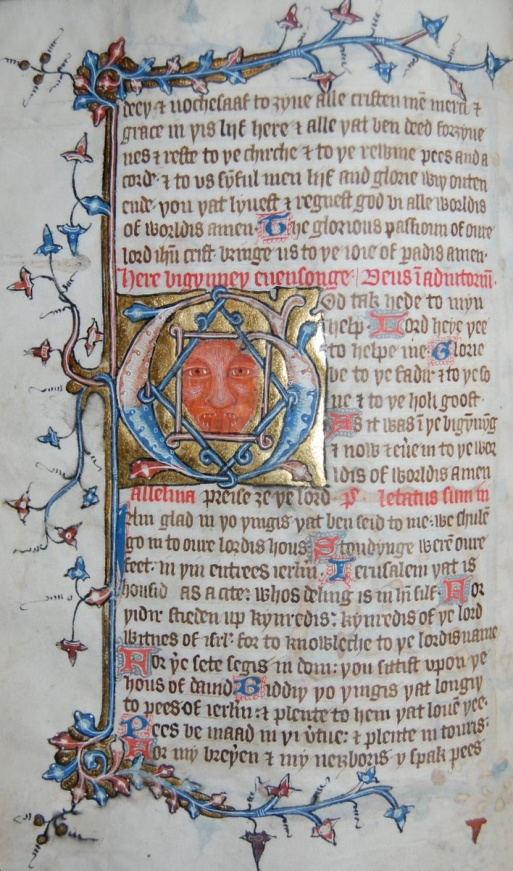 deey & uochesaaf to zyue alle cristen me merci &
grace in yis lijf here & alle yat ben deed forzyue
nes & reste to ye chirche & to ye rewme pees and a
cord & to vs synful men lijf and glorie wiy outen
ende you yat lyuest & regnest god bi alle worldis
of worldis amen The glorious passioun of oure
lord ihu crist bringe us to ye ioie of padis amen
here bigynney euensonge Deus i adiutoriu
God tak hede to myn
help Lord heye yee
to helpe me Glorie
be to ye fadir & to ye so
ne & to ye holi goost
As it was i ye bigynyg
& now & eue in to ye wor
ldis of worldis amen
alleluia preise ze ye lord ps letatus sum in
I am glad in yo yingis yat ben seid to me we schule
go in to oure lordis hous Stondynge were oure
feet in yin entrees ierlm Ierusalem yat is
as a cite whos deling is in hi silf For
yidir stieden up kynredis kynredis of ye lord
witnes of isrl for to knowleche to ye lordis name
For ye sete segis in dom you sittist upon ye
hous of dauid Biddiy yo yingis yat longiy
to pees of ierlm & plente to hem yat loue yee
Pees be maad in yi vtue & plente in touris
For my breyen & my neizboris y spak pees